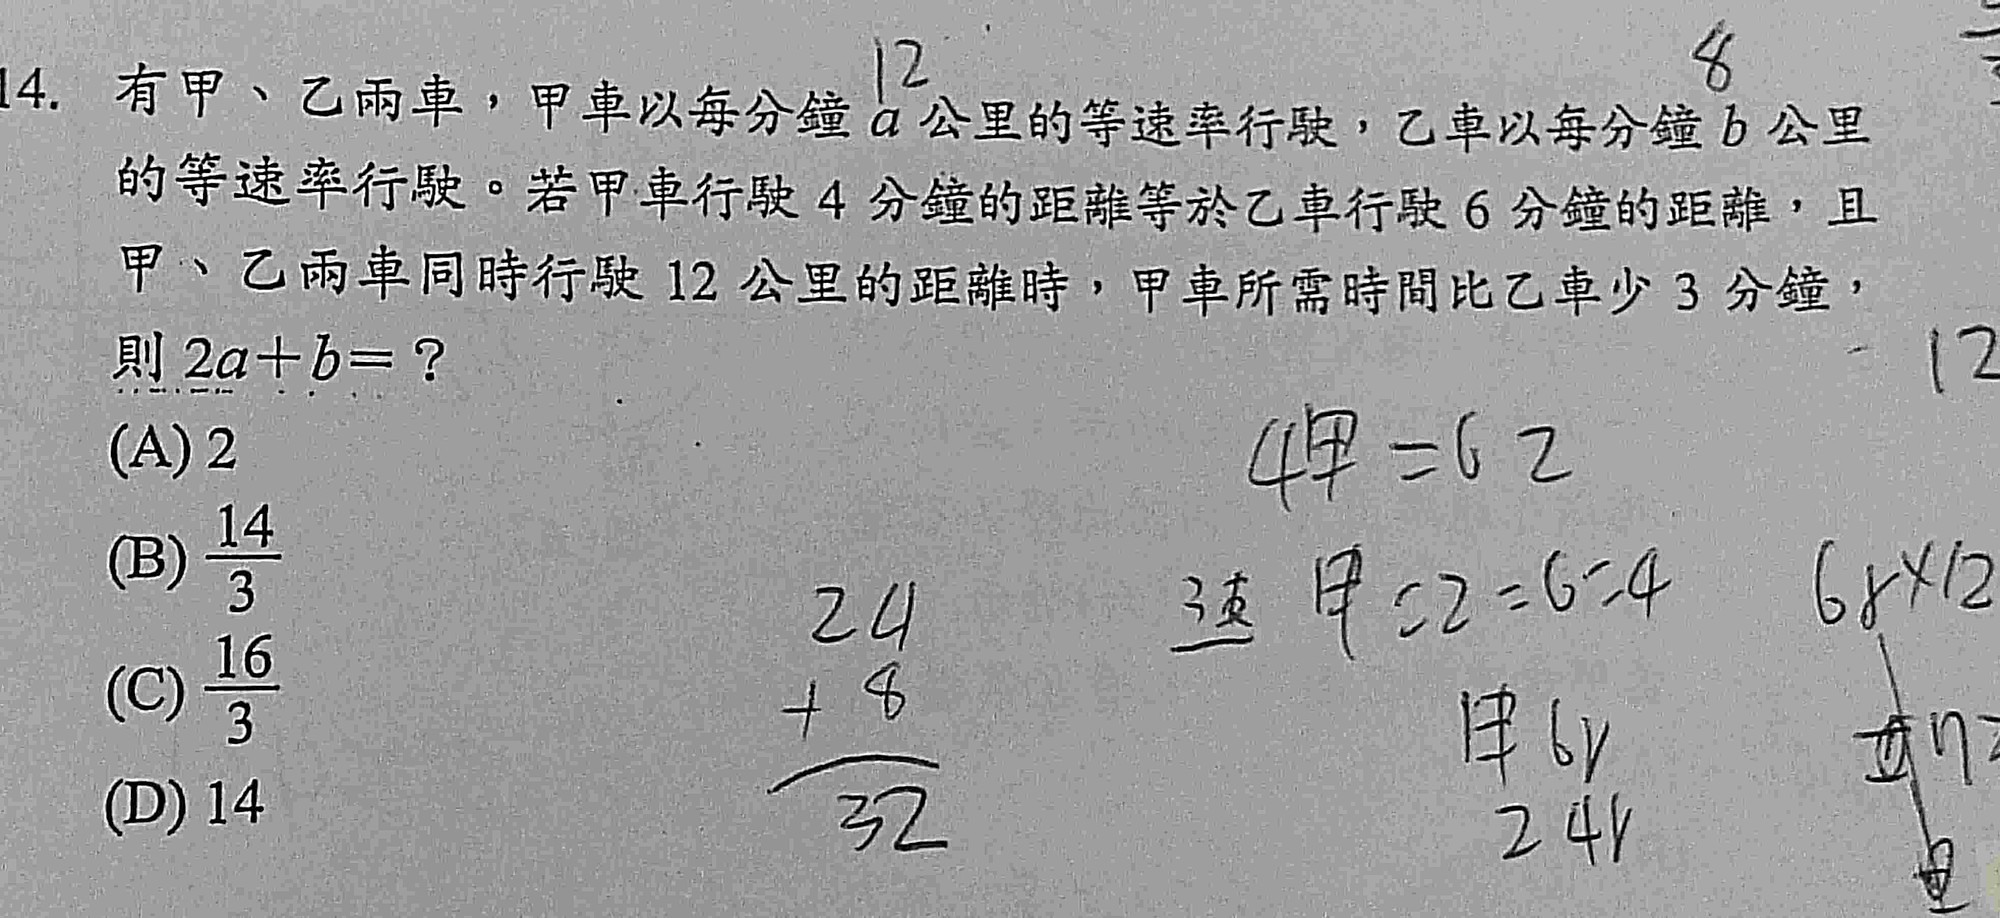 12
8
14. 有甲、乙兩車，甲車以每分鐘 a 公里的等速率行駛，乙車以每分鐘 b 公里
的等速率行駛。若甲車行駛 4 分鐘的距離等於乙車行駛 6 分鐘的距離，且
甲、乙兩車同時行駛 12 公里的距離時，甲車所需時間比乙車少 3 分鐘，
則 2a+b=？
12
(A) 2
4甲=6乙
(B) 14/3
速 甲:乙=6:4
6r×12
24
+ 8
32
(C) 16/3
甲 6r
24r
(D) 14